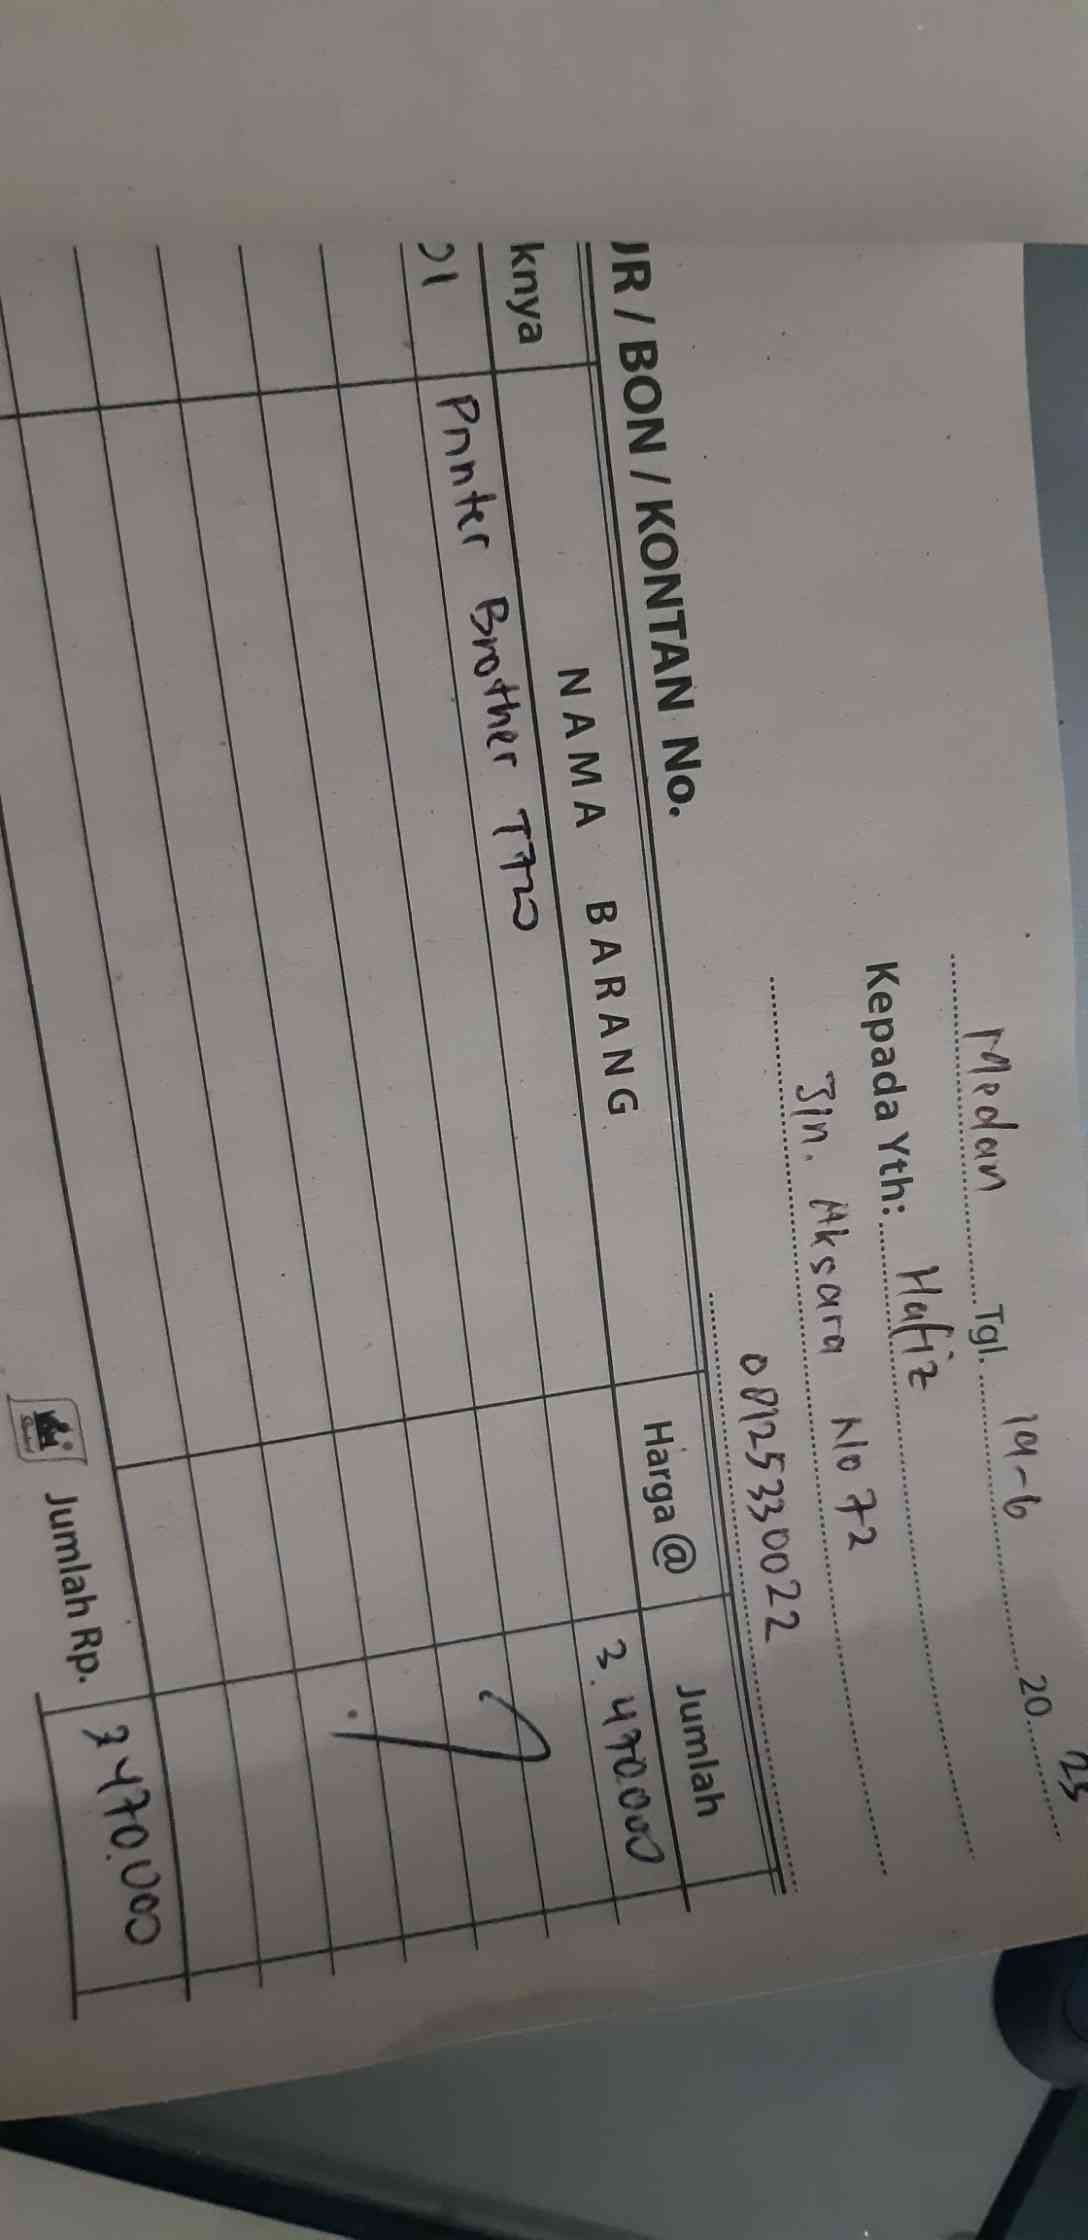 Medan Tgl. 19-6 20 23
Kepada Yth: Hafiz
Jln. Aksara No 72
081253330022
UR / BON / KONTAN No.
knya NAMA BARANG Harga @ Jumlah
01 Printer Brother T720 3.470.000
Jumlah Rp. 3 470.000